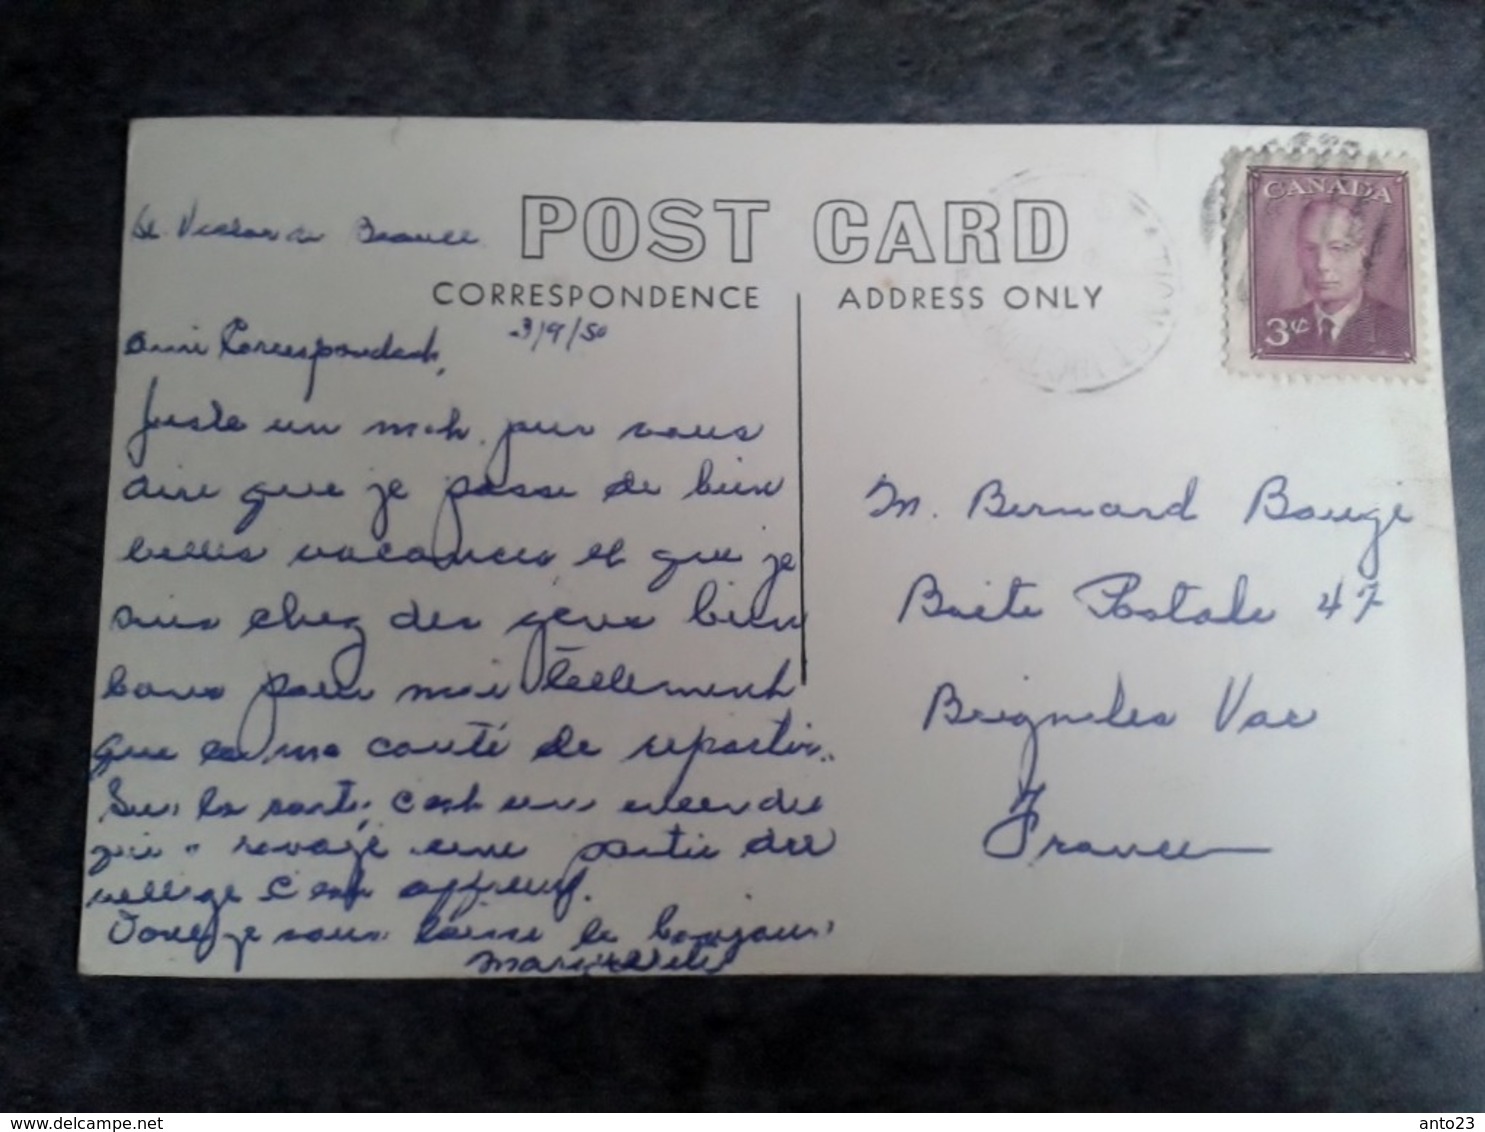 St Victor de Beauce
POST CARD
CORRESPONDENCE
ADDRESS ONLY
3/9/50
CANADA
3¢
Ami Correspondant,
Juste un mot pour vous
dire que je passe de bien
belles vacances et que je
suis chez des gens bien
bons pour moi tellement
que ça me coûte de repartir..
Sur la carte, c'est un incendie
qui a ravagé une partie du
village c'est affreux.
je vous laisse le bonjour
M. Bernard Bougé
Boite Postale 47
Brignoles Var
France
delcampe.net
anto23